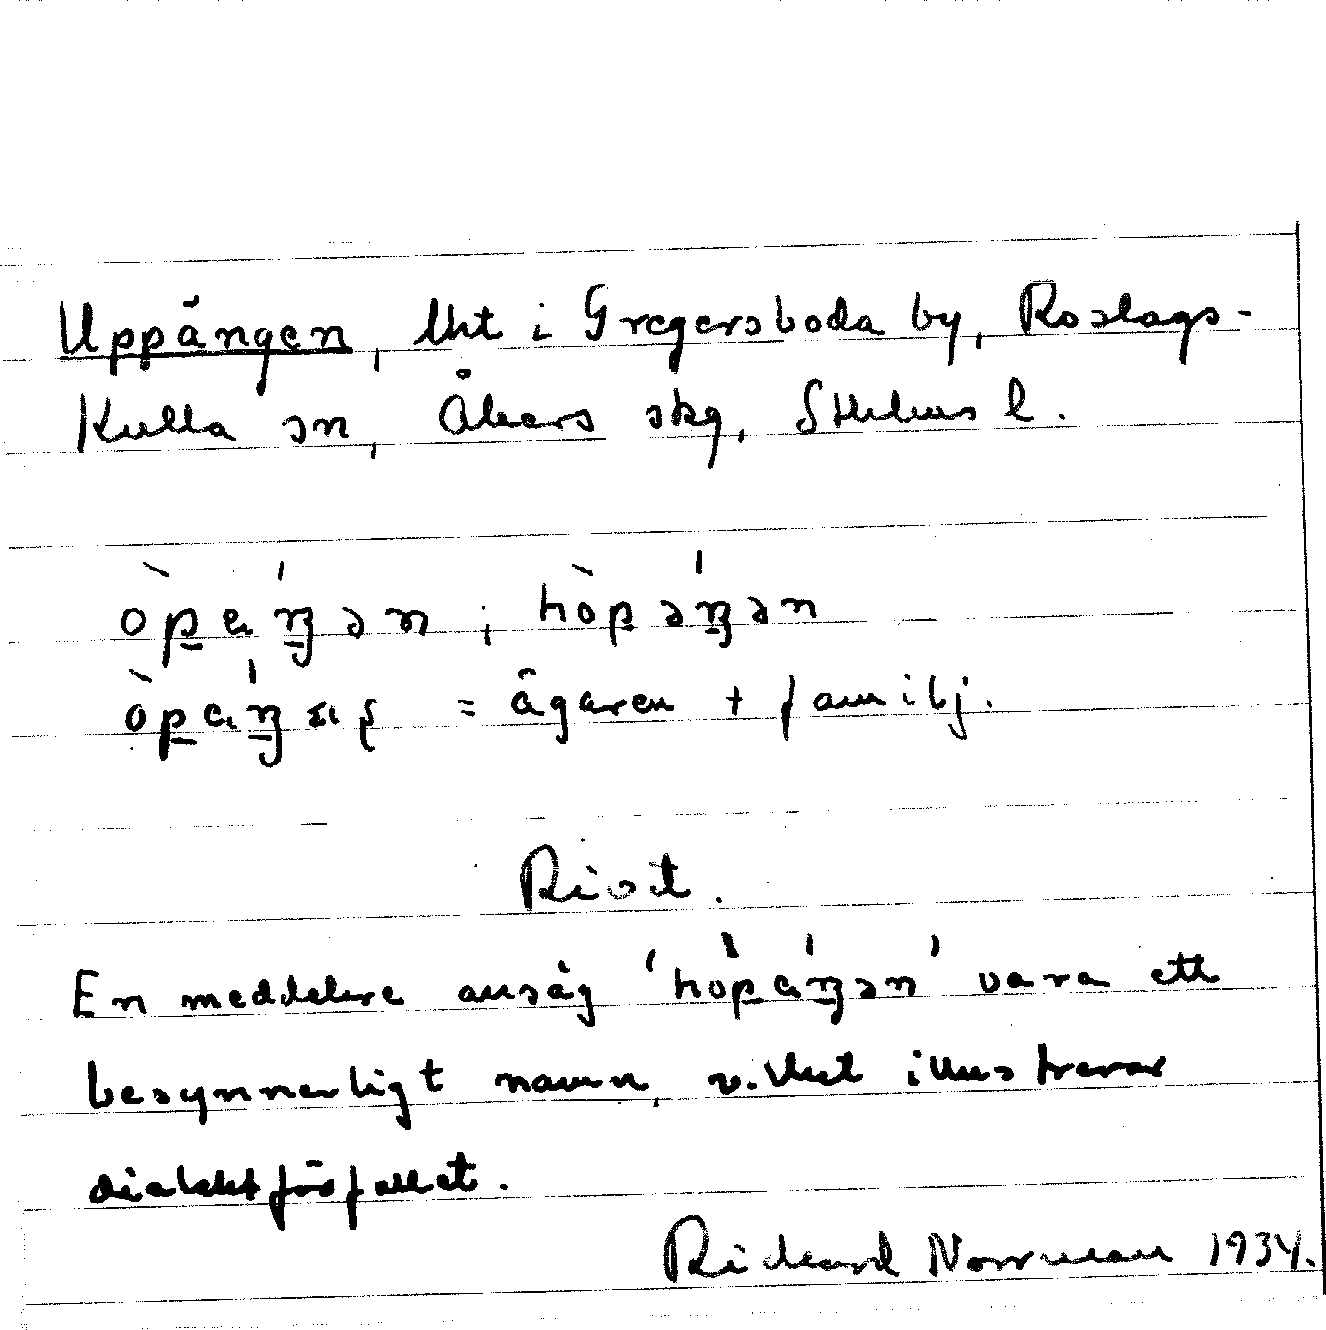 Uppängen, lht i Gregersboda by, Roslags-
Kulla sn, Åkers skg, Sthlms l.
òpáŋən ; hòpəŋən
= ägaren + familj.
En meddelare ansåg 'hòpáŋən' vara ett
besynnerligt namn, vilket illustrerar
dialektförfallet.
Rickard Norrman 1934.